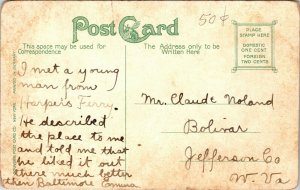 Post Card
50¢
This space may be used for
Correspondence
The Address only to be
Written Here
PLACE
STAMP HERE
DOMESTIC
ONE CENT
FOREIGN
TWO CENTS
I met a young
man from
Harpers Ferry.
He described
the place to me
and told me that
he liked it out
there much better
then Baltimore
Mr. Claude Noland
Bolivar
Jefferson Co
W. Va